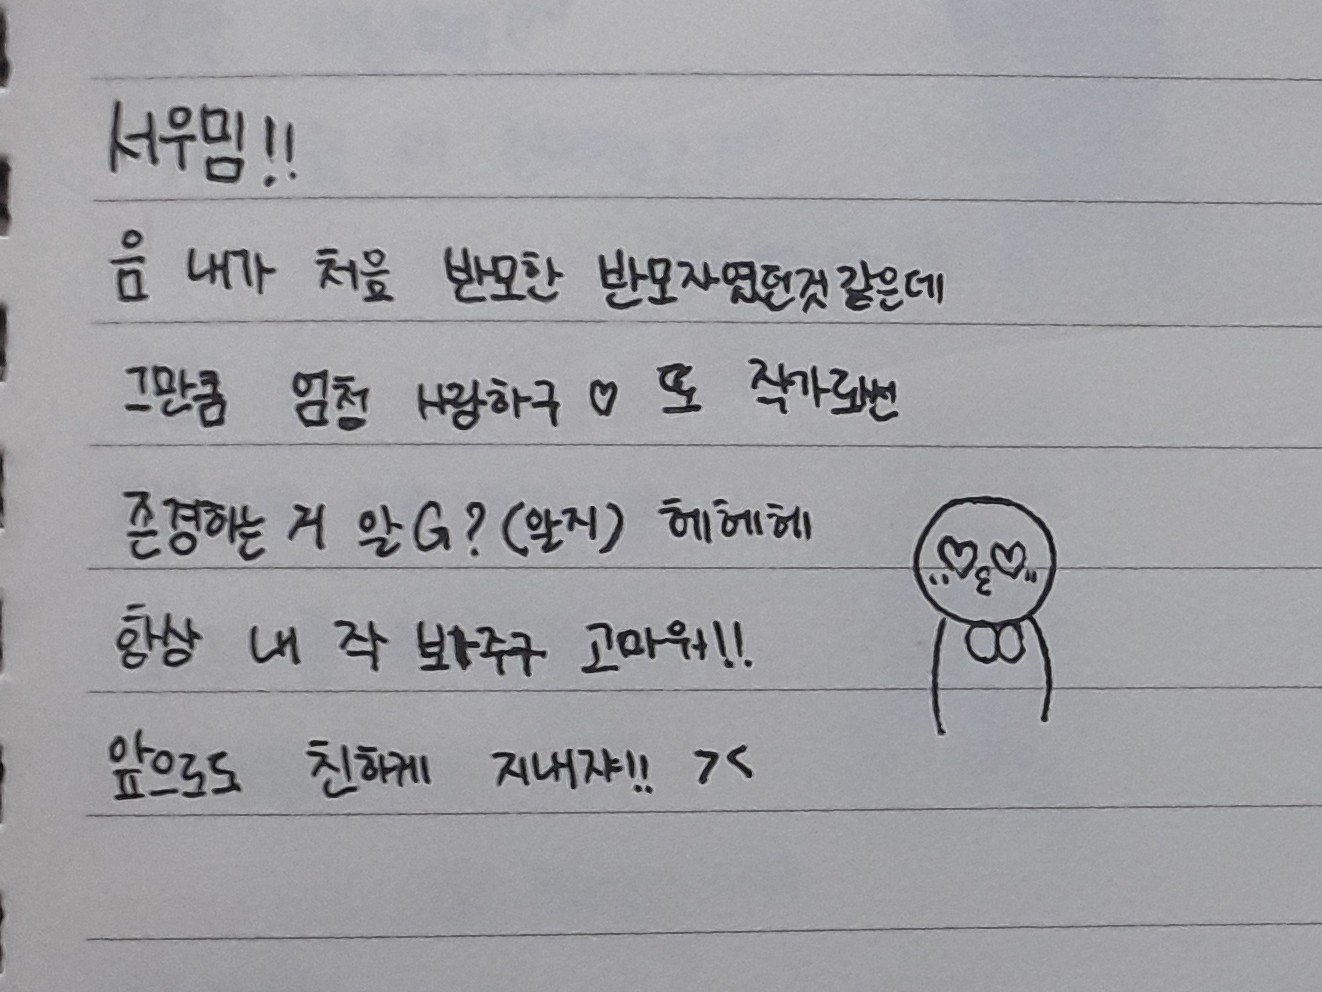 서우밈!!
음 내가 처음 반모한 반모자였던것같은데
그만큼 엄청 사랑하구 ♡ 또 작가로썬
존경하는 거 알G? (알지) 헤헤헤
항상 내 작 봐주구 고마워!!
앞으로도 친하게 지내쟈!! ><